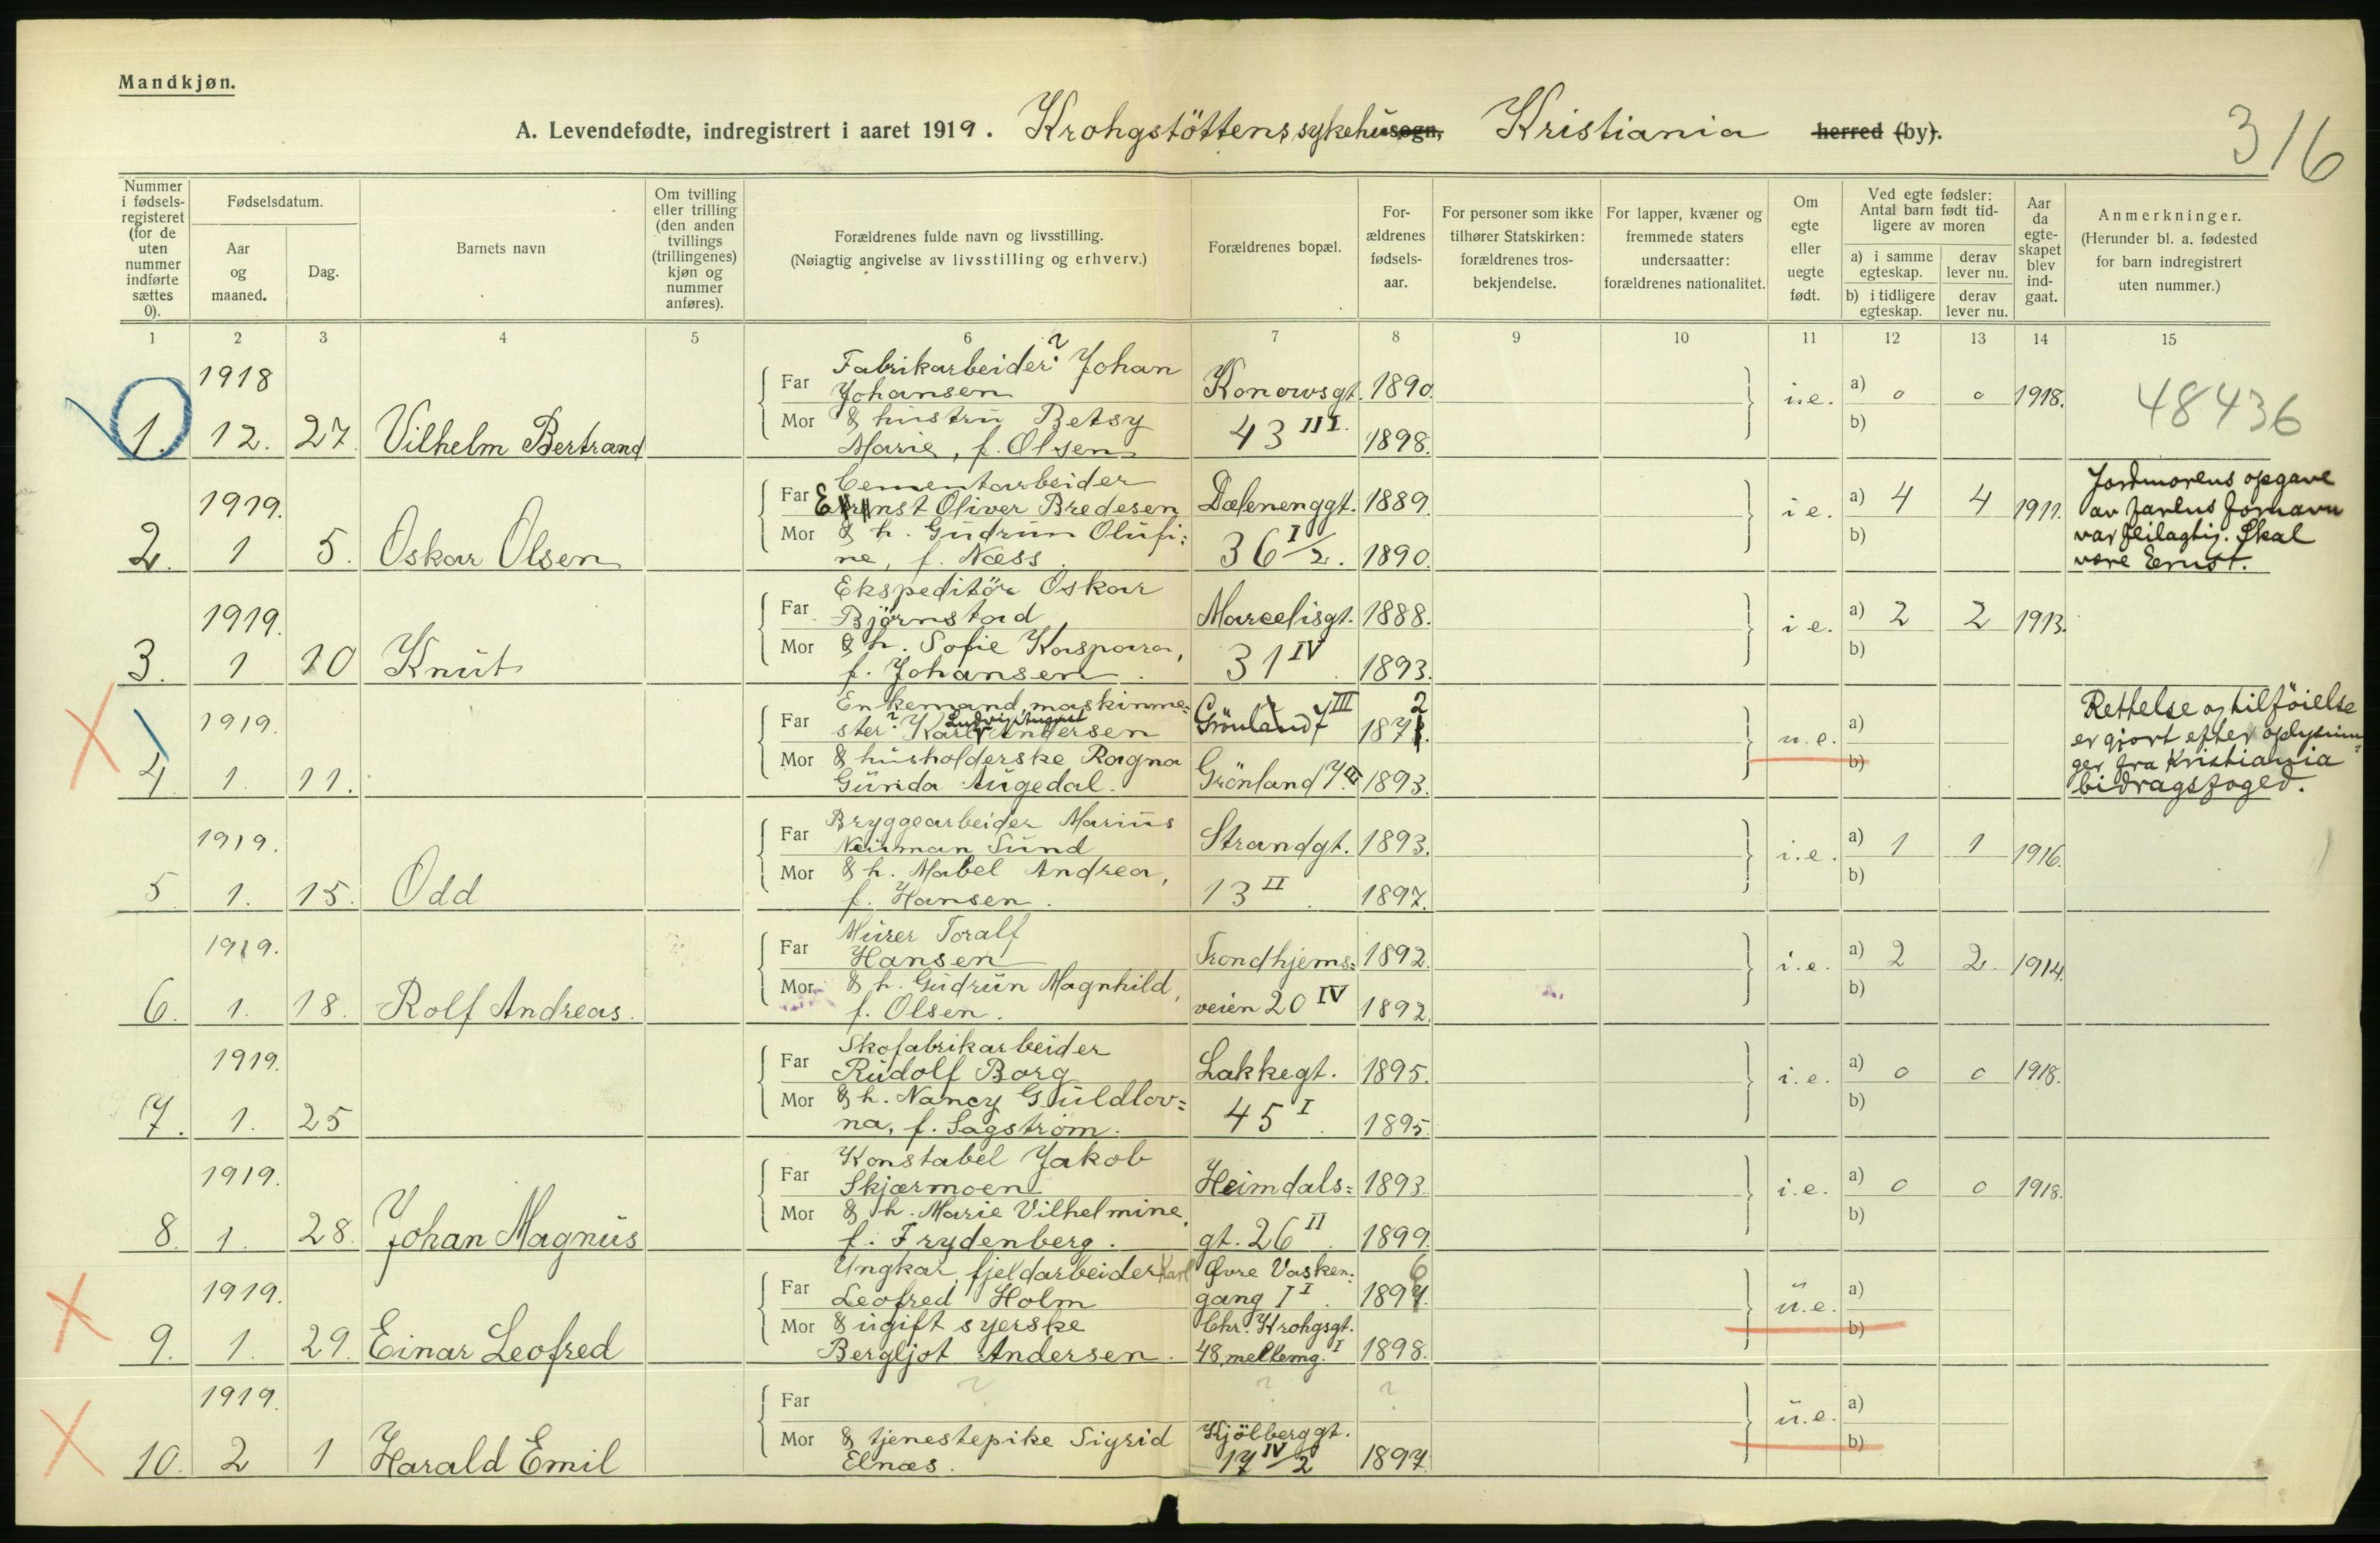 Mandkjøn.
A. Levendefødte, indregistrert i aaret 1919. Krohgstöttens sykehus sogn, Kristiania herred (by).
316
Nummer i fødsels-registeret (for de uten nummer indførte sættes 0).
Fødselsdatum.
Aar og maaned.
Dag.
Barnets navn
Om tvilling eller trilling (den anden tvillings (trillingenes) kjøn og nummer anføres).
Forældrenes fulde navn og livsstilling.
(Nøiagtig angivelse av livsstilling og erhverv.)
Forældrenes bopæl.
For-ældrenes fødsels-aar.
For personer som ikke tilhører Statskirken: forældrenes tros-bekjendelse.
For lapper, kvæner og fremmede staters undersaatter: forældrenes nationalitet.
Om egte eller uegte født.
Ved egte fødsler: Antal barn født tid-ligere av moren
a) i samme egteskap.
derav lever nu.
b) i tidligere egteskap.
derav lever nu.
Aar da egte-skapet blev ind-gaat.
Anmerkninger.
(Herunder bl. a. fødested for barn indregistrert uten nummer.)
1 2 3 4 5 6 7 8 9 10 11 12 13 14 15
1918
Far Fabrikarbeider ? Johan
Johansen Konowsgt. 1890. i.e. a) 0 0 1918. 48436
Mor & hustru Betsy
1. 12. 27. Vilhelm Bertrand Marie, f. Olsen 43 III. 1898. b)
1919.
Far Cementarbeider
Ernst Oliver Bredesen Dælenenggt. 1889. i e. a) 4 4 1911.
Mor & h. Gudrun Olufi=
2. 1 5. Oskar Olsen ne, f. Næss 36 I/2. 1890. b)
Jordmorens opgave
av farens fornavn
var feilagtig. Skal
være Ernst.
1919.
Far Ekspeditör Oskar
Björnstad Marcelisgt. 1888. i e. a) 2 2 1913.
Mor & h. Sofie Kaspara,
3. 1 10 Knut f. Johansen 31 IV. 1893. b)
1919.
Far Enkemand, maskinme=
ster ? Karl Ludvig August Andersen Grönland 7 III 1872 u.e. a)
Mor & husholderske Ragna
4. 1. 11. Gunda Augedal. Grönland 7 III 1893. b)
Rettelse og tilföielse
er gjort efter oplysnin=
ger fra Kristiania
bidragsfoged.
1919.
Far Bryggearbeider Marius
Neuman Sund Strandgt. 1893. i.e. a) 1 1 1916.
Mor & h. Mabel Andrea,
5. 1. 15. Odd f. Hansen. 13 II. 1897. b)
1919.
Far Murer Toralf
Hansen Trondhjems= 1892. i.e. a) 2 2 1914.
Mor & h. Gudrun Magnhild,
6. 1. 18. Rolf Andreas. f. Olsen. veien 20 IV 1892. b)
1919.
Far Skofabrikarbeider
Rudolf Borg Lakkegt. 1895. i.e. a) 0 0 1918.
Mor & h. Nancy Guldlov=
7. 1. 25 na, f. Sagström. 45 I. 1895. b)
1919.
Far Konstabel Jakob
Skjærmoen Heimdals= 1893. i.e. a) 0 0 1918.
Mor & h. Marie Vilhelmine,
8. 1. 28. Johan Magnus f. Frydenberg. gt. 26 II. 1899. b)
1919.
Far Ungkar, fjeldarbeider Karl Øvre Vasken= 6
Leofred Holm gang 1 I. 1897. u.e. a)
Mor & ugift syerske Chr. Krohgsgt.
9. 1. 29. Einar Leofred Bergljot Andersen. 48, mellemg. I 1898. b)
1919.
Far ? ? ? u.e. a)
Mor & tjenestepike Sigrid Kjölberggt.
10. 2 1 Harald Emil Elnæs. 17 IV/2 1897. b)